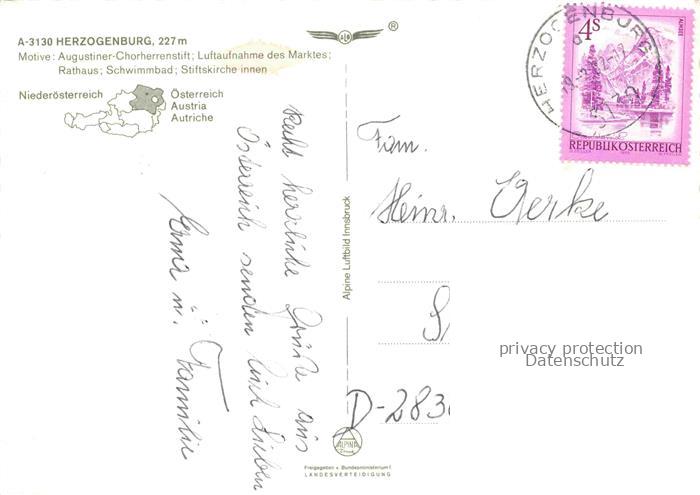 A-3130 HERZOGENBURG, 227 m
Motive: Augustiner-Chorherrenstift; Luftaufnahme des Marktes;
Rathaus; Schwimmbad; Stiftskirche innen
Niederösterreich
Österreich
Austria
Autriche
ALB
®
HERZOGENBURG
4S
ALMSEE
REPUBLIK ÖSTERREICH
Recht herzliche Grüße aus
Österreich senden Euch Lieben
Erna u. Familie
Alpine Luftbild Innsbruck
Fam.
Heinr. Gerke
D-283
privacy protection
Datenschutz
ALPINA
Druck
Freigegeben v. Bundesministerium f.
LANDESVERTEIDIGUNG